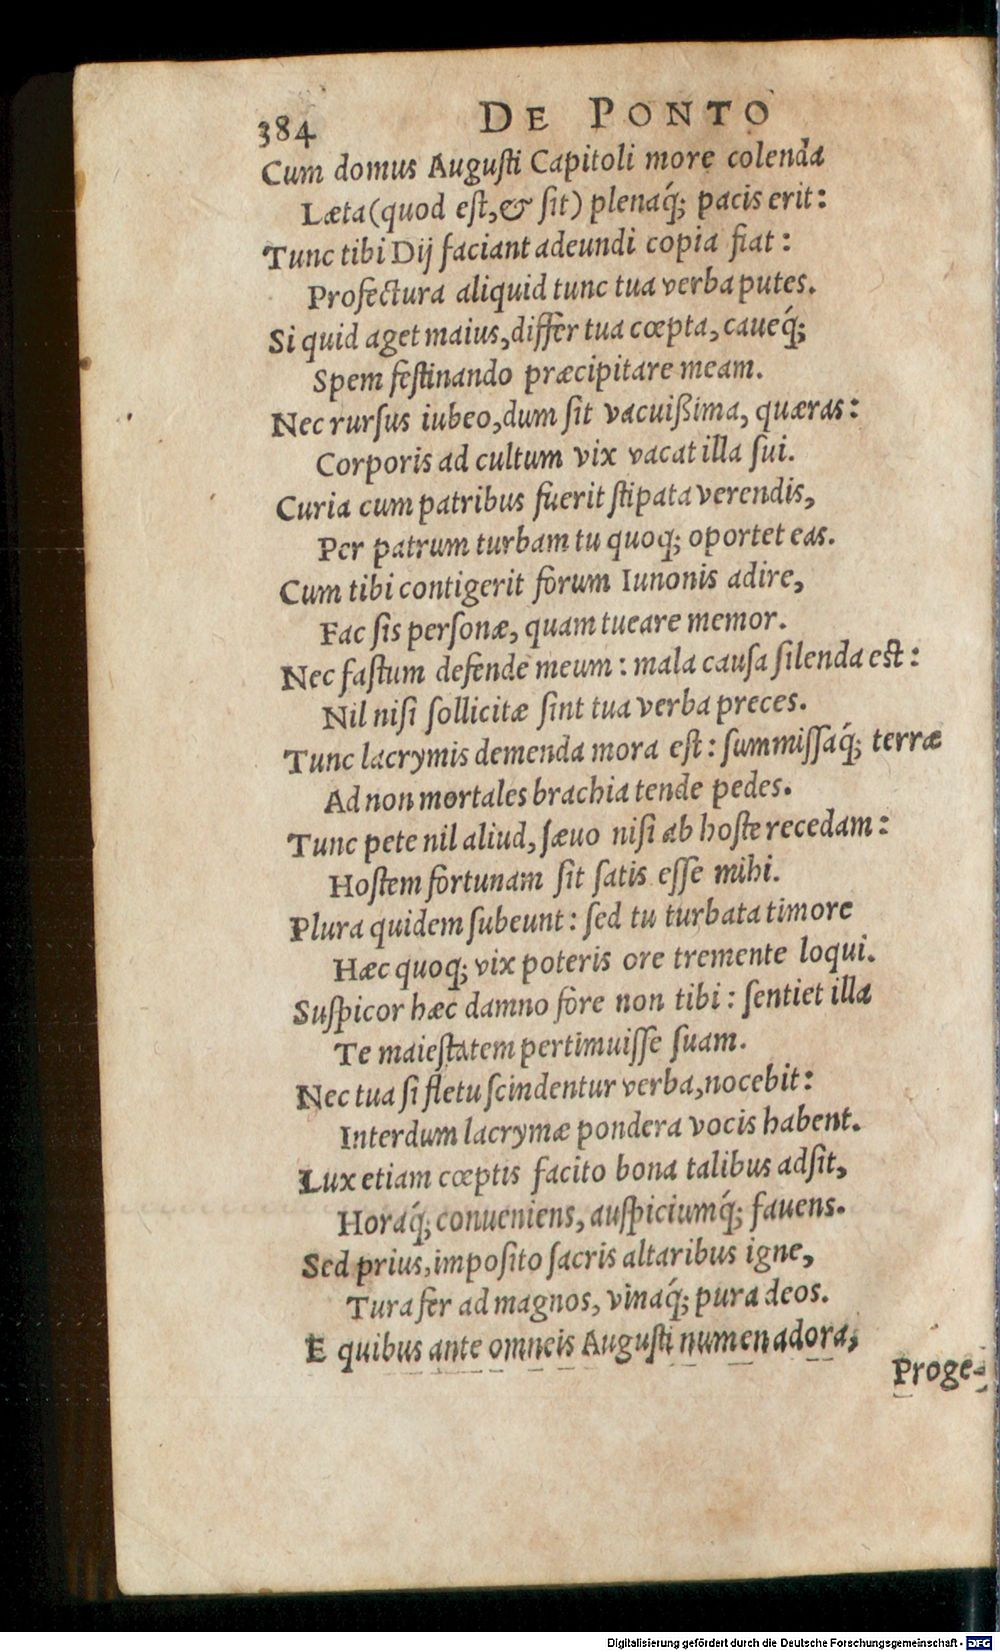 384 DE PONTO
Cum domus Auguſti Capitoli more colenda
Læta (quod eſt, & ſit) plenaq́; pacis erit:
Tunc tibi Dij faciant adeundi copia fiat:
Profectura aliquid tunc tua verba putes.
Si quid aget maius, differ tua cœpta, caueq́;
Spem feſtinando præcipitare meam.
Nec rurſus iubeo, dum ſit vacuißima, quæras:
Corporis ad cultum vix vacat illa ſui.
Curia cum patribus fuerit ſtipata verendis,
Per patrum turbam tu quoq; oportet eas.
Cum tibi contigerit forum Iunonis adire,
Fac ſis perſonæ, quam tueare memor.
Nec faſtum defende meum: mala cauſa ſilenda est:
Nil niſi ſollicitæ ſint tua verba preces.
Tunc lacrymis demenda mora eſt: ſummiſſaq́; terræ
Ad non mortales brachia tende pedes.
Tunc pete nil aliud, ſæuo niſi ab hoſte recedam:
Hoſtem fortunam ſit ſatis eſſe mihi.
Plura quidem ſubeunt: ſed tu turbata timore
Hæc quoq; vix poteris ore tremente loqui.
Suſpicor hæc damno fore non tibi: ſentiet illa
Te maieſtatem pertimuiſſe ſuam.
Nec tua ſi fletu ſcindentur verba, nocebit:
Interdum lacrymæ pondera vocis habent.
Lux etiam cœptis facito bona talibus adſit,
Horaq́; conueniens, auſpiciumq́; fauens.
Sed prius, impoſito ſacris altaribus igne,
Tura fer ad magnos, vinaq́; pura deos.
E quibus ante omneis Auguſti numen adora,
Proge-
Digitalisierung gefördert durch die Deutsche Forschungsgemeinschaft - DFG